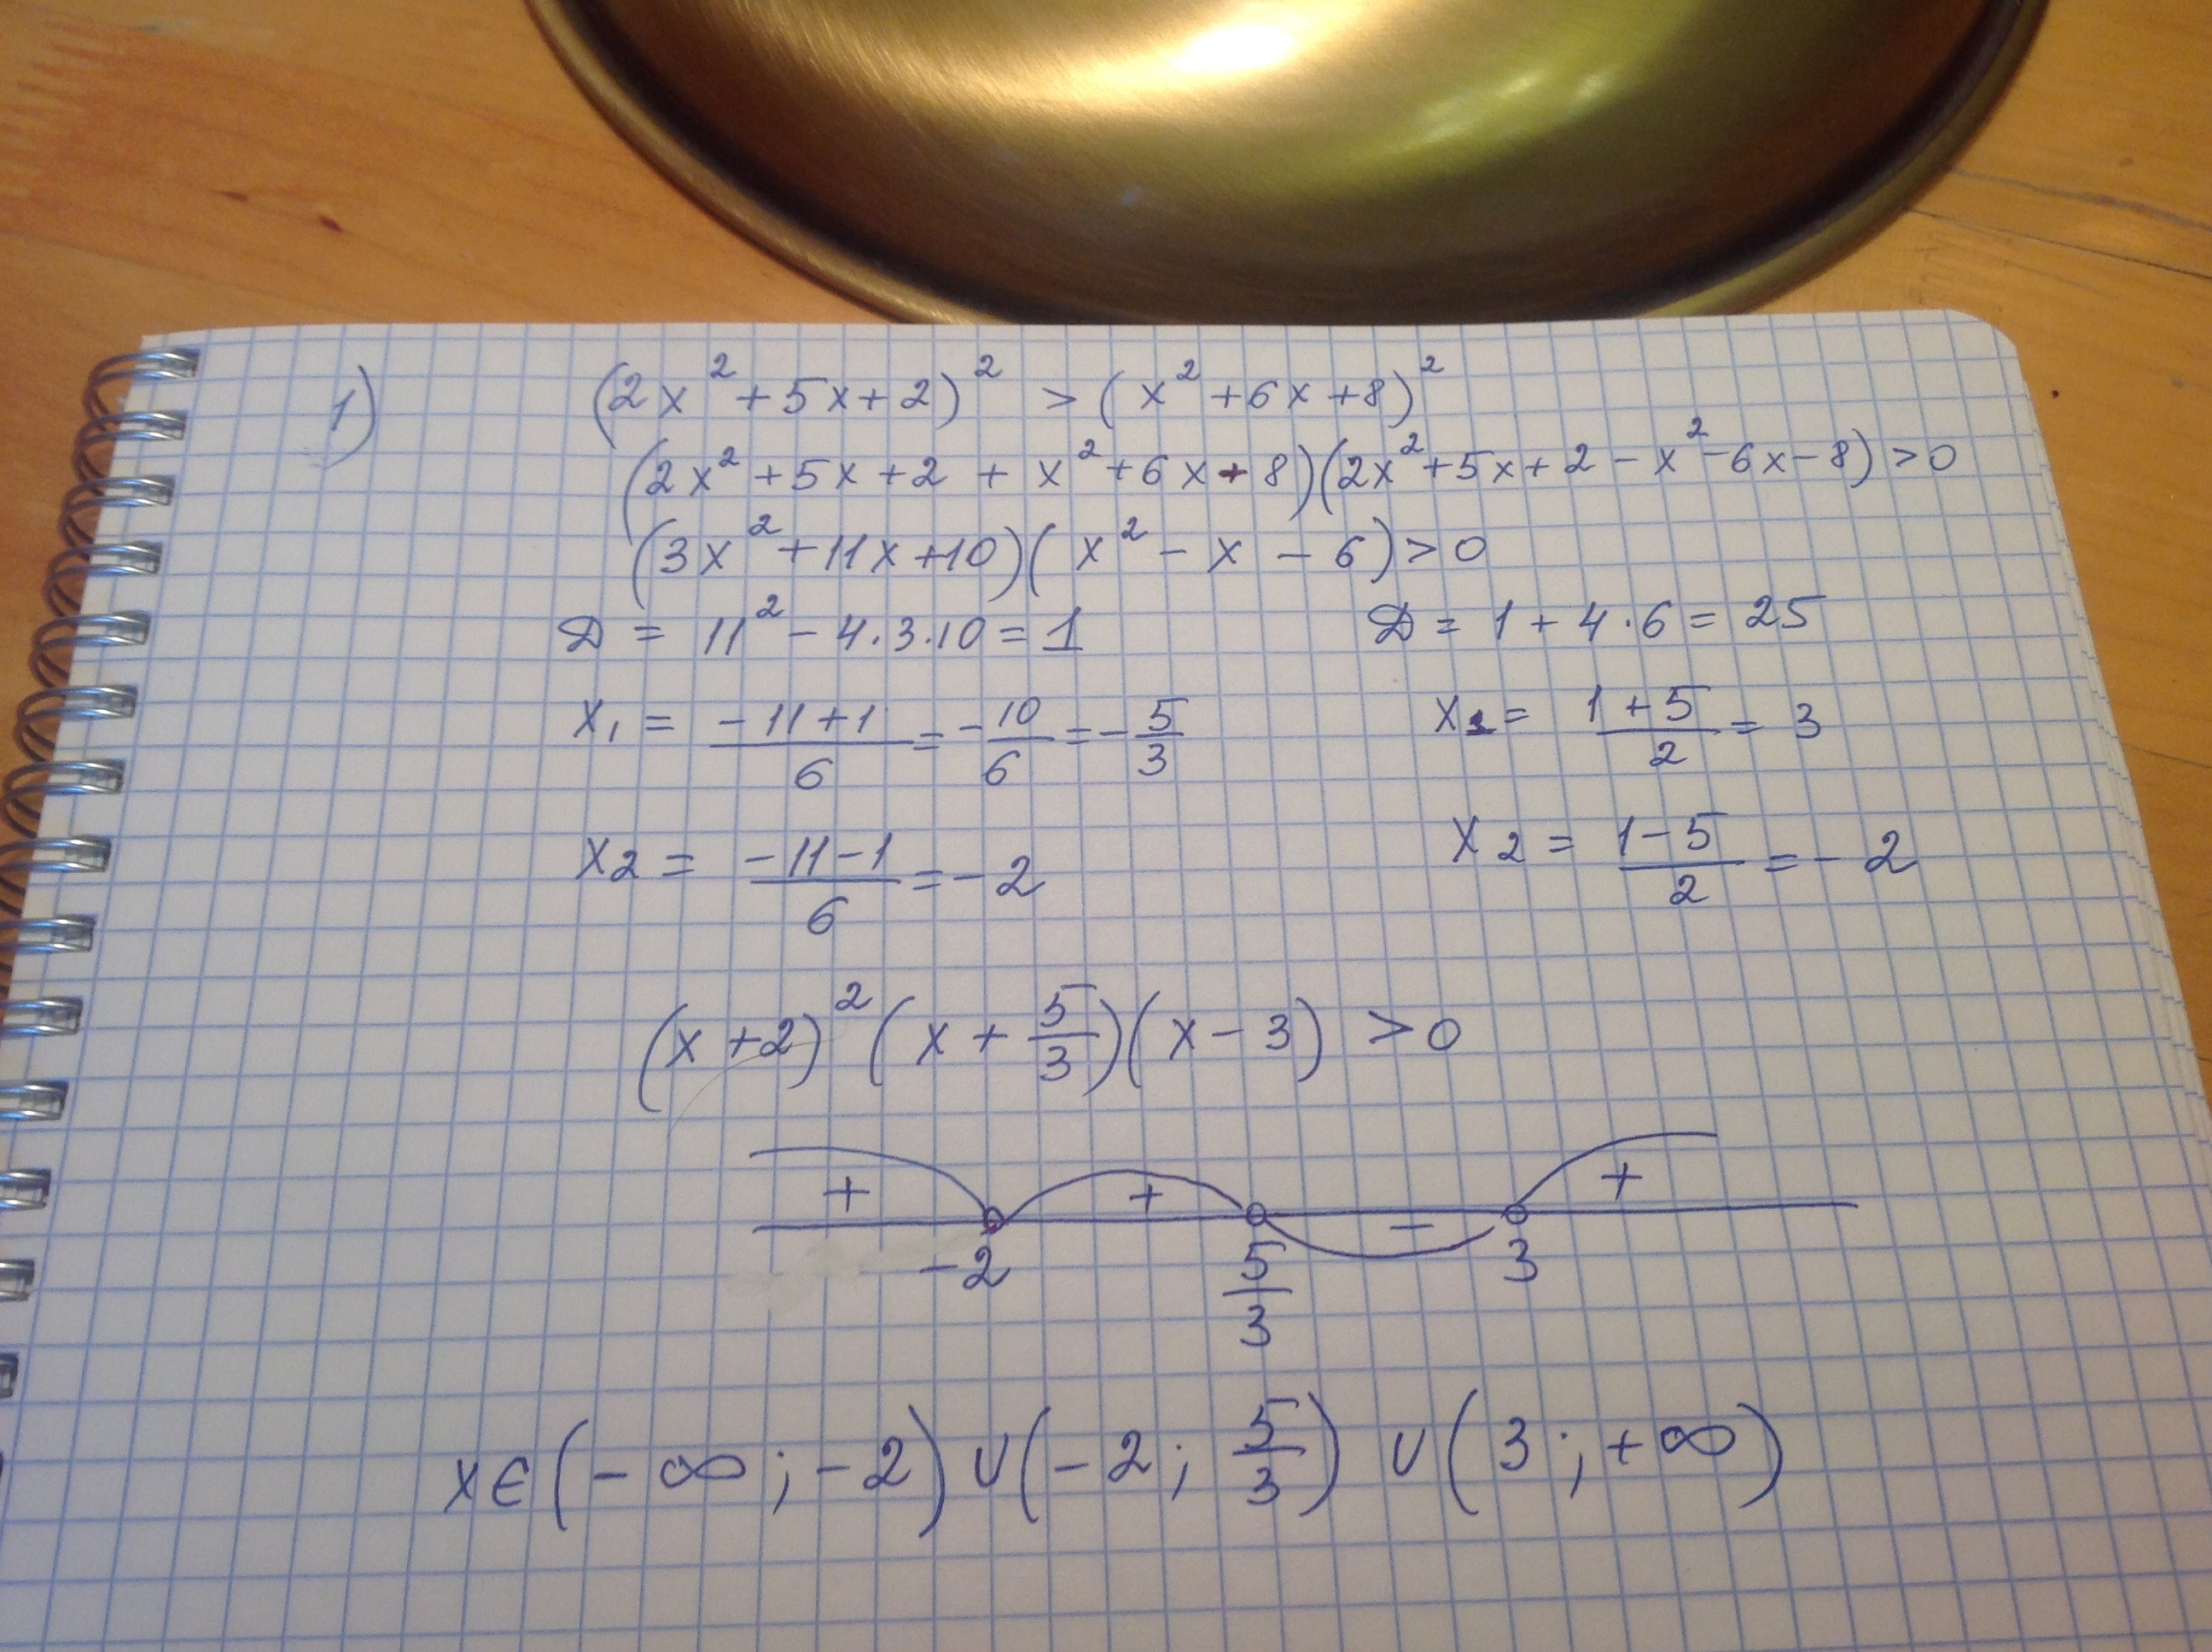 1) (2x² + 5x + 2)² > (x² + 6x + 8)²
(2x² + 5x + 2 + x² + 6x + 8)(2x² + 5x + 2 - x² - 6x - 8) > 0
(3x² + 11x + 10)(x² - x - 6) > 0
D = 11² - 4·3·10 = 1 D = 1 + 4·6 = 25
x₁ = (-11+1)/6 = -10/6 = -5/3 x₁ = (1+5)/2 = 3
x₂ = (-11-1)/6 = -2 x₂ = (1-5)/2 = -2
(x+2)² (x + 5/3)(x - 3) > 0
+ + - +
-2 5/3 3
x ∈ (-∞; -2) ∪ (-2; 5/3) ∪ (3; +∞)